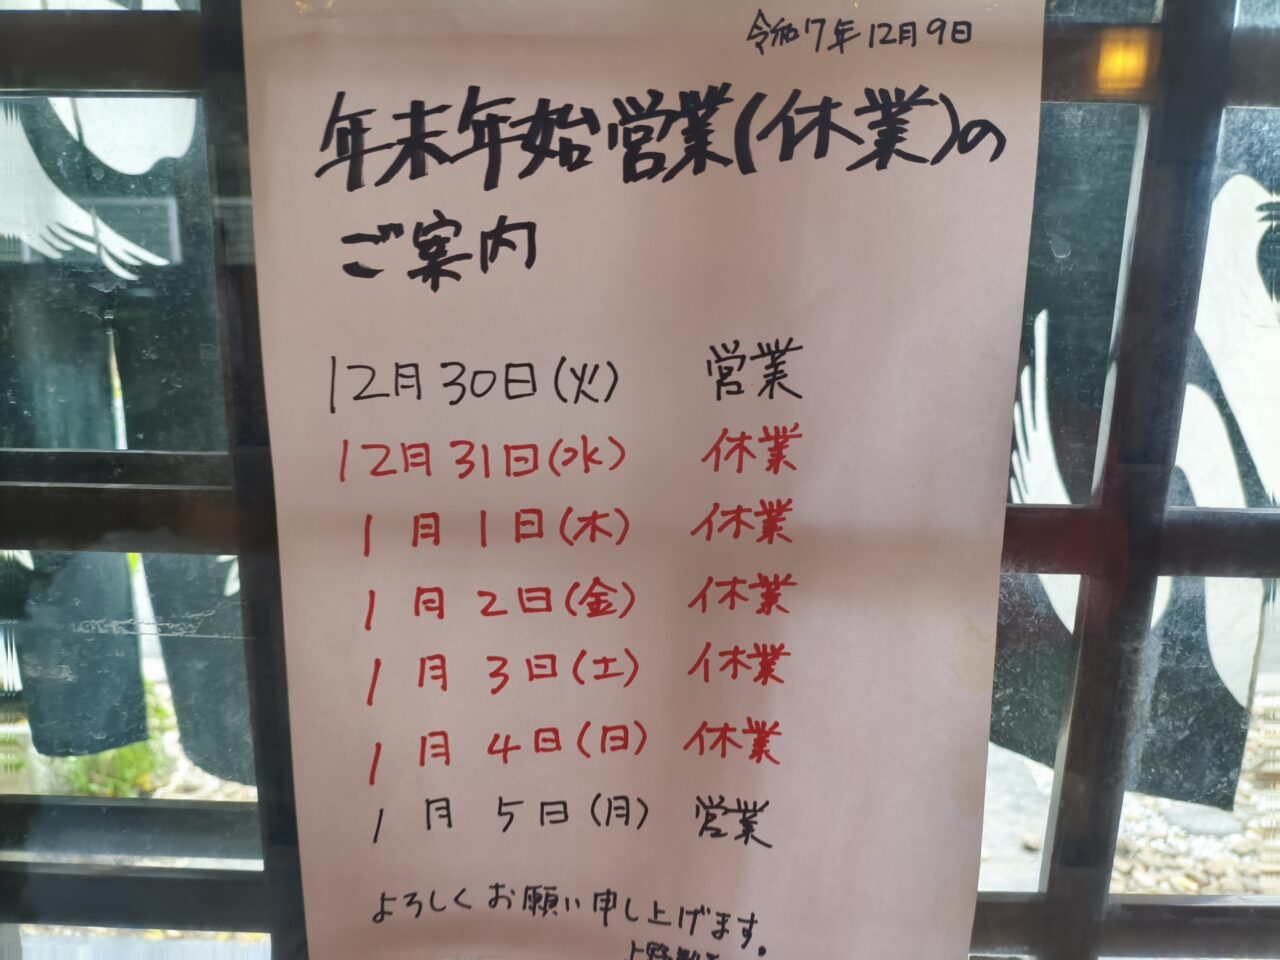 令和7年12月9日
年末年始営業(休業)の
ご案内
12月30日(火) 営業
12月31日(水) 休業
1月1日(木) 休業
1月2日(金) 休業
1月3日(土) 休業
1月4日(日) 休業
1月5日(月) 営業
よろしくお願い申し上げます。